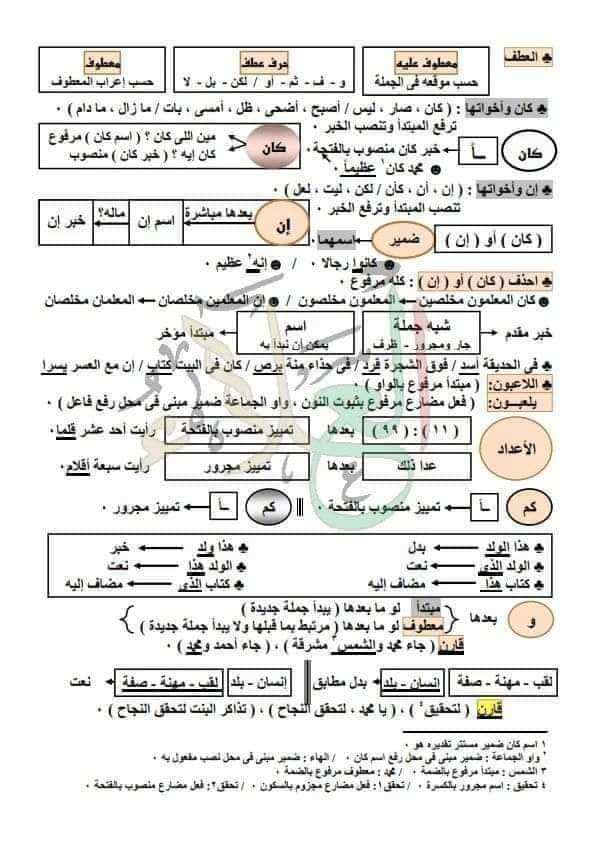 ♣ العطف
معطوف عليه حرف عطف معطوف
حسب موقعه فى الجملة و - ف - ثم - أو / لكن - بل - لا حسب إعراب المعطوف
♣ كان وأخواتها : ( كان ، صار ، ليس / أصبح ، أضحى ، ظل ، أمسى ، بات / ما زال ، ما دام ) ٠
ترفع المبتدأ وتنصب الخبر ٠
كان ـاً خبر كان منصوب بالفتحة ٠ كان مين اللى كان ؟ ( اسم كان ) مرفوع
كان إيه ؟ ( خبر كان ) منصوب
محمد كان ١ عظيماً ٠
♣ إن وأخواتها : ( إن ، أن ، كأن / لكن ، ليت ، لعل ) ٠
تنصب المبتدأ وترفع الخبر ٠
إن بعدها مباشرة اسم إن ماله؟ خبر إن
( كان ) أو ( إن ) ضمير اسمهما
كانوا رجالا ٠ / إنه ٢ عظيم ٠
♣ احذف ( كان ) أو ( إن ) : كله مرفوع ٠
كان المعلمون مخلصين المعلمون مخلصون / إن المعلمين مخلصان المعلمان مخلصان
خبر مقدم شبه جملة اسم مبتدأ مؤخر
جار ومجرور - ظرف يمكن أن نبدأ به
♣ فى الحديقة أسد / فوق الشجرة قرد / فى حذاء منة برص / كان فى البيت كتاب / إن مع العسر يسرا
♣ اللاعبون: ( مبتدأ مرفوع بالواو ) ٠
يلعبون: ( فعل مضارع مرفوع بثبوت النون ، واو الجماعة ضمير مبنى فى محل رفع فاعل ) ٠
الأعداد ( ١١ ) : ( ٩٩ ) بعدها تمييز منصوب بالفتحة رأيت أحد عشر قلما
عدا ذلك بعدها تمييز مجرور رأيت سبعة أقلام ٠
كم ـاً تمييز منصوب بالفتحة ٠ كم ـاً تمييز مجرور ٠
♣ هذا الولد بدل ♣ هذا ولد خبر
♣ الولد الذى نعت ♣ الولد هذا نعت
♣ كتاب هذا مضاف إليه ♣ كتاب الذى مضاف إليه
و بعدها مبتدأ لو ما بعدها ( يبدأ جملة جديدة )
معطوف لو ما بعدها ( مرتبط بما قبلها ولا يبدأ جملة جديدة )
قارن ( جاء محمد والشمس ٣ مشرقة ) ، ( جاء أحمد ومحمد ) ٠
لقب - مهنة - صفة إنسان - بلد بدل مطابق إنسان - بلد لقب - مهنة - صفة نعت
قارن ( لتحقيق ٤ ) ، ( يا محمد ، لتحقق النجاح ) ، ( تذاكر البنت لتحقق النجاح ) ٠
١ اسم كان ضمير مستتر تقديره هو ٠
٢ واو الجماعة : ضمير مبنى فى محل رفع اسم كان ٠ / الهاء : ضمير مبنى فى محل نصب مفعول به ٠
٣ الشمس : مبتدأ مرفوع بالضمة ٠ / محمد : معطوف مرفوع بالضمة ٠
٤ تحقيق : اسم مجرور بالكسرة ٠ / تحقق١ : فعل مضارع مجزوم بالسكون ٠ / تحقق٢: فعل مضارع منصوب بالفتحة ٠